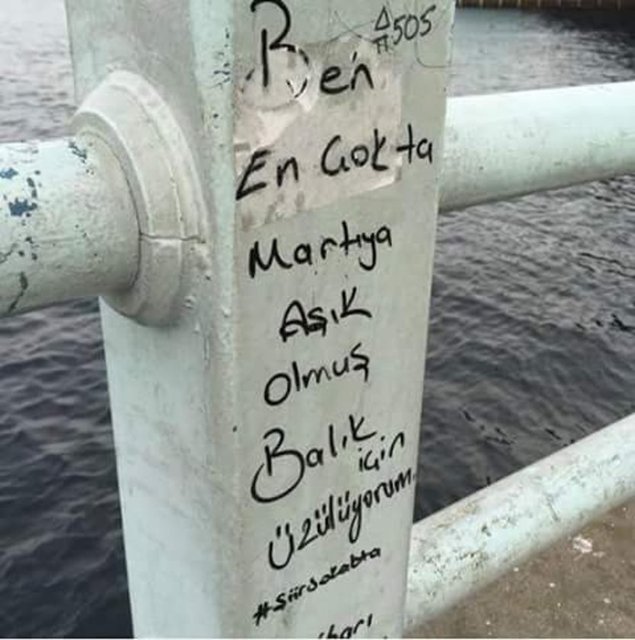 Ben
505
En Gokta
Martıya
Aşık
Olmuş
Balık
için
Üzülüyorum.
#Şiirsokabta